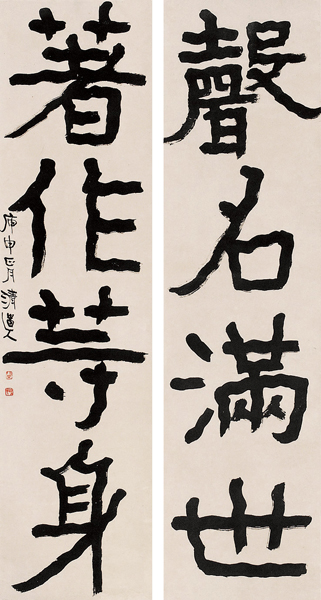 聲名滿世
著作等身
庚申正月清道人